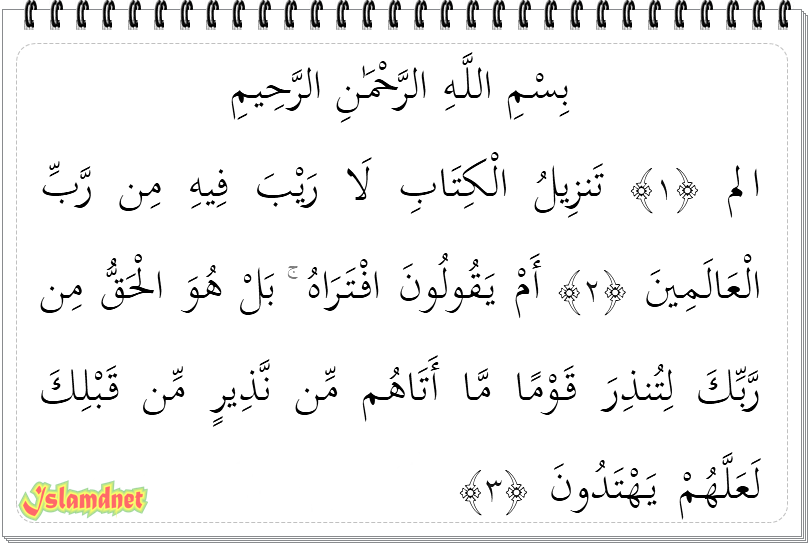 بِسْمِ اللَّهِ الرَّحْمَٰنِ الرَّحِيمِ
الم ﴿١﴾ تَنزِيلُ الْكِتَابِ لَا رَيْبَ فِيهِ مِن رَّبِّ
الْعَالَمِينَ ﴿٢﴾ أَمْ يَقُولُونَ افْتَرَاهُ ۚ بَلْ هُوَ الْحَقُّ مِن
رَّبِّكَ لِتُنذِرَ قَوْمًا مَّا أَتَاهُم مِّن نَّذِيرٍ مِّن قَبْلِكَ
لَعَلَّهُمْ يَهْتَدُونَ ﴿٣﴾
Islamdnet